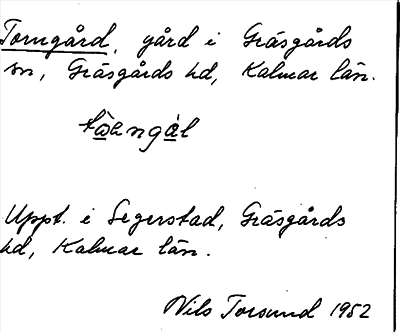 Torngård, gård i Gräsgårds
sn, Gräsgårds hd, Kalmar län.
Uppt. i Segerstad, Gräsgårds
hd, Kalmar län.
Nils Torsund 1952